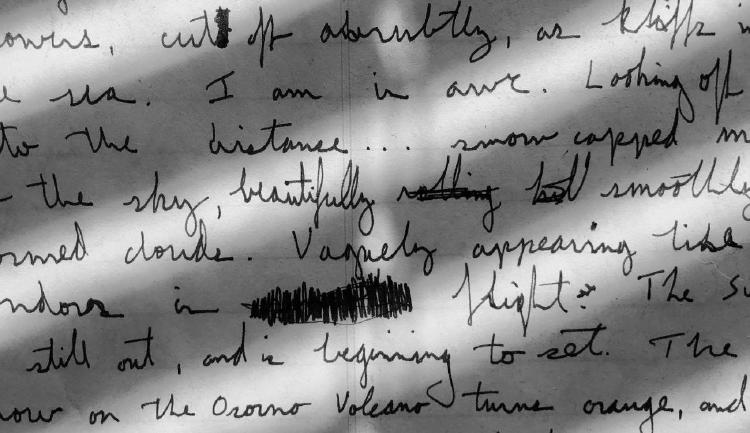 owers, cut off abrubtly, as kliffs in
e sea. I am in awe. Looking off
to the distance... snow capped m
the sky, beautifully rolling but smoothly
ormed clouds. Vaguely appearing like
ndors in flight. The su
still out, and is beginning to set. The
now on the Osorno Volcano turns orange, and